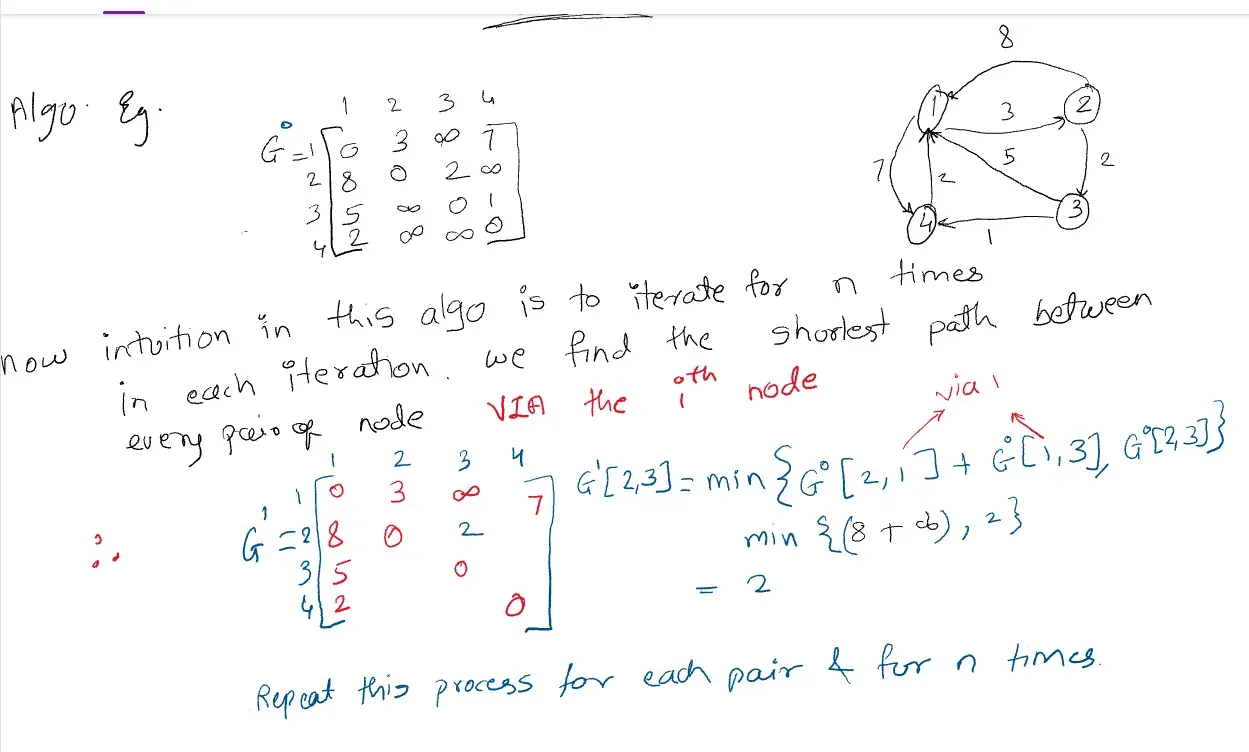 Algo. Eg.
1 2 3 4
G⁰ = 1 0 3 ∞ 7
2 8 0 2 ∞
3 5 ∞ 0 1
4 2 ∞ ∞ 0
8
1 3 2
7 2 5 2
4 1 3
now intuition in this algo is to iterate for n times
in each iteration. we find the shortest path between
every pair of node VIA the ith node
via 1
1 2 3 4
∴ G¹ = 1 0 3 ∞ 7
2 8 0 2
3 5 0
4 2 0
G¹[2,3] = min {G⁰[2,1] + G⁰[1,3], G⁰[2,3]}
min {(8 + ∞), 2}
= 2
Repeat this process for each pair & for n times.